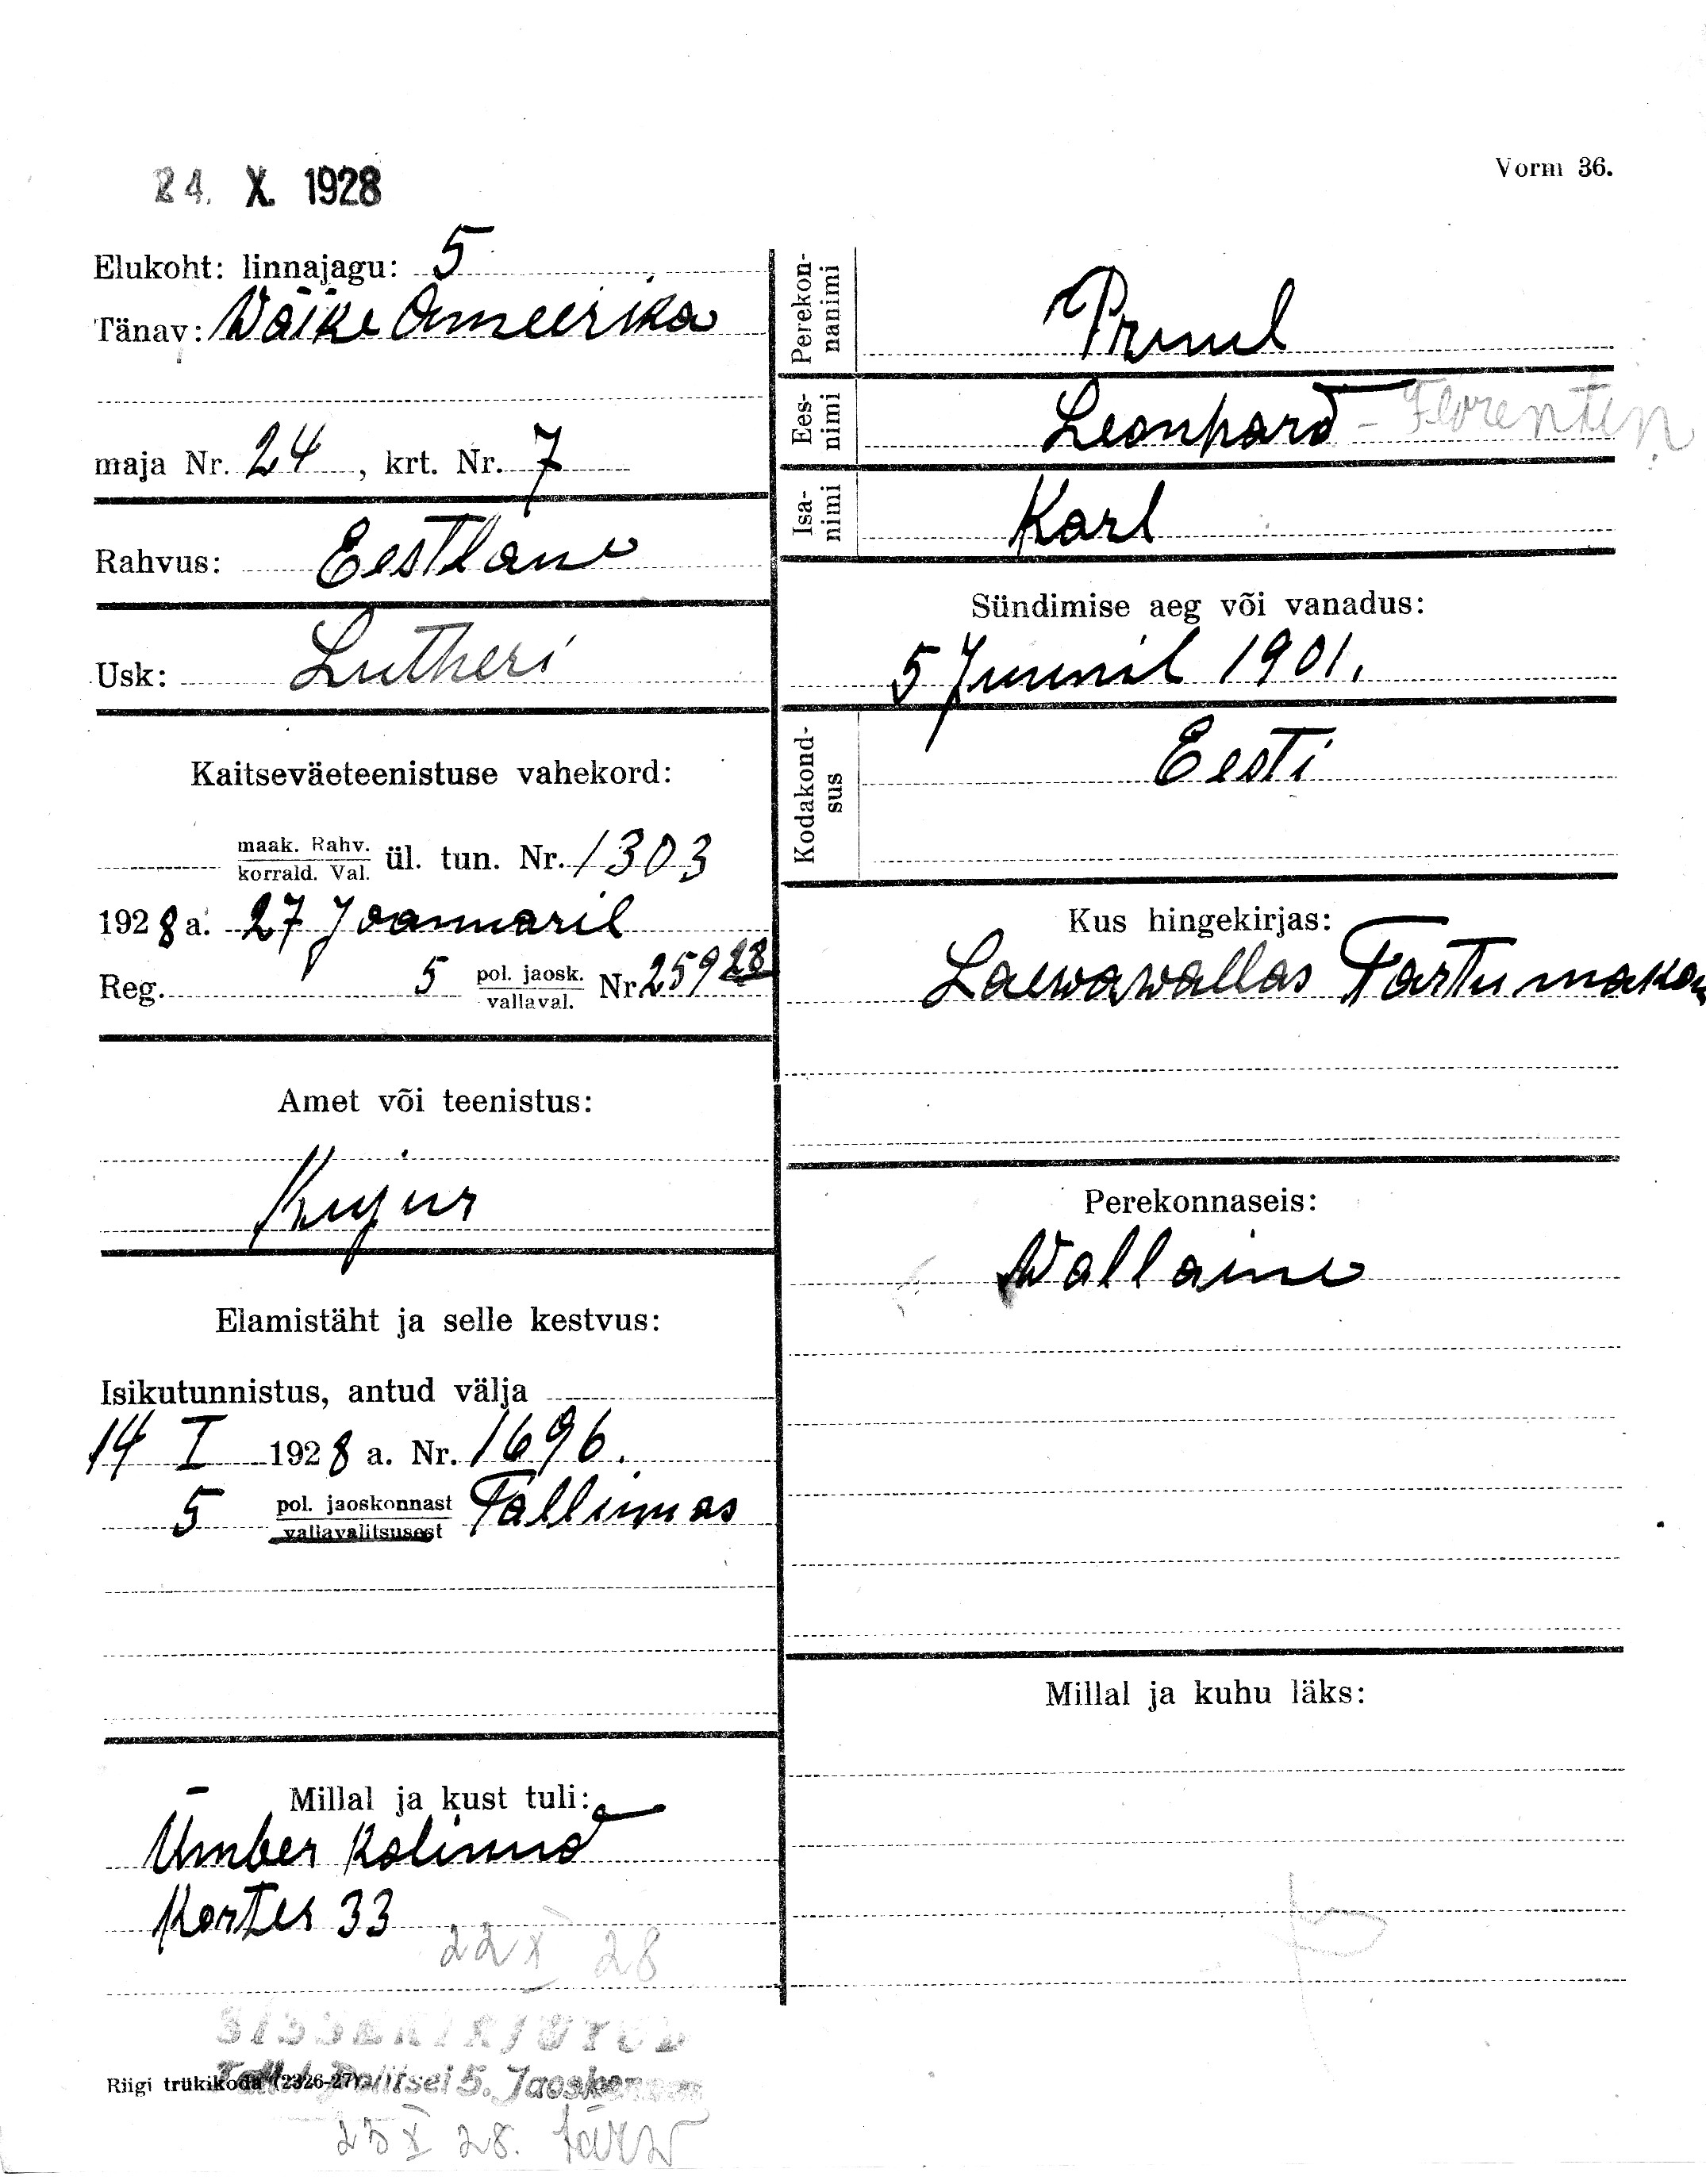 24. X. 1928
Vorm 36.
Elukoht: linnajagu: 5
Tänav: Wäike Ameerika
maja Nr. 24, krt. Nr. 7
Rahvus: Eestlane
Usk: Lutheri
Kaitseväeteenistuse vahekord:
maak. Rahv.
korrald. Val. ül. tun. Nr. 1303
1928 a. 27 Jaanuaril
Reg. 5 pol. jaosk.
vallaval. Nr 259 28
Amet või teenistus:
Kujur
Elamistäht ja selle kestvus:
Isikutunnistus, antud välja
14 I 1928 a. Nr. 1696.
5 pol. jaoskonnast
vallavalitsusest Tallinnas
Millal ja kust tuli:
Ümber kolinud
Kortes 33
22 X 28
Perekon-
nanimi
Pruul
Ees-
nimi
Leonhard - Florentin
Isa-
nimi
Karl
Sündimise aeg või vanadus:
5 Juunil 1901.
Kodakond-
sus
Eesti
Kus hingekirjas:
Laewawallas TartumaKon
Perekonnaseis:
Wallaline
Millal ja kuhu läks:
SISSEKIRJUTUD
Tall. Politsei 5. Jaoskonnas
Riigi trükikoda (2326-27)
25 X 28.